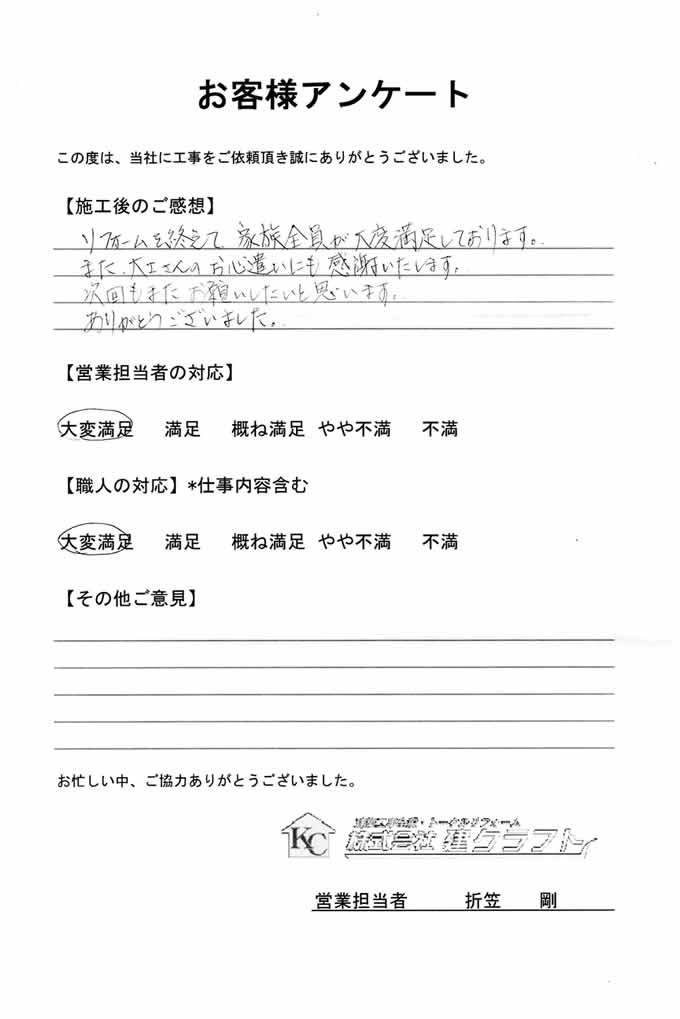 お客様アンケート
この度は、当社に工事をご依頼頂き誠にありがとうございました。
【施工後のご感想】
リフォームを終えて、家族全員が大変満足しております。
また、大工さんのお心遣いにも感謝いたします。
次回もまたお願いしたいと思います。
ありがとうございました。
【営業担当者の対応】
大変満足 満足 概ね満足 やや不満 不満
【職人の対応】*仕事内容含む
大変満足 満足 概ね満足 やや不満 不満
【その他ご意見】
お忙しい中、ご協力ありがとうございました。
・トータルリフォーム
KC 株式会社 建クラフト
営業担当者 折笠 剛